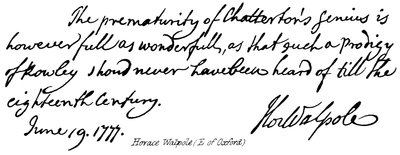 The prematurity of Chatterton's genius is
however full as wonderfull, as that such a Prodigy
of Rowley shoud never have been heard of till the
eighteenth Century.
June 19. 1777.
Hor Walpole
Horace Walpole (E of Oxford)